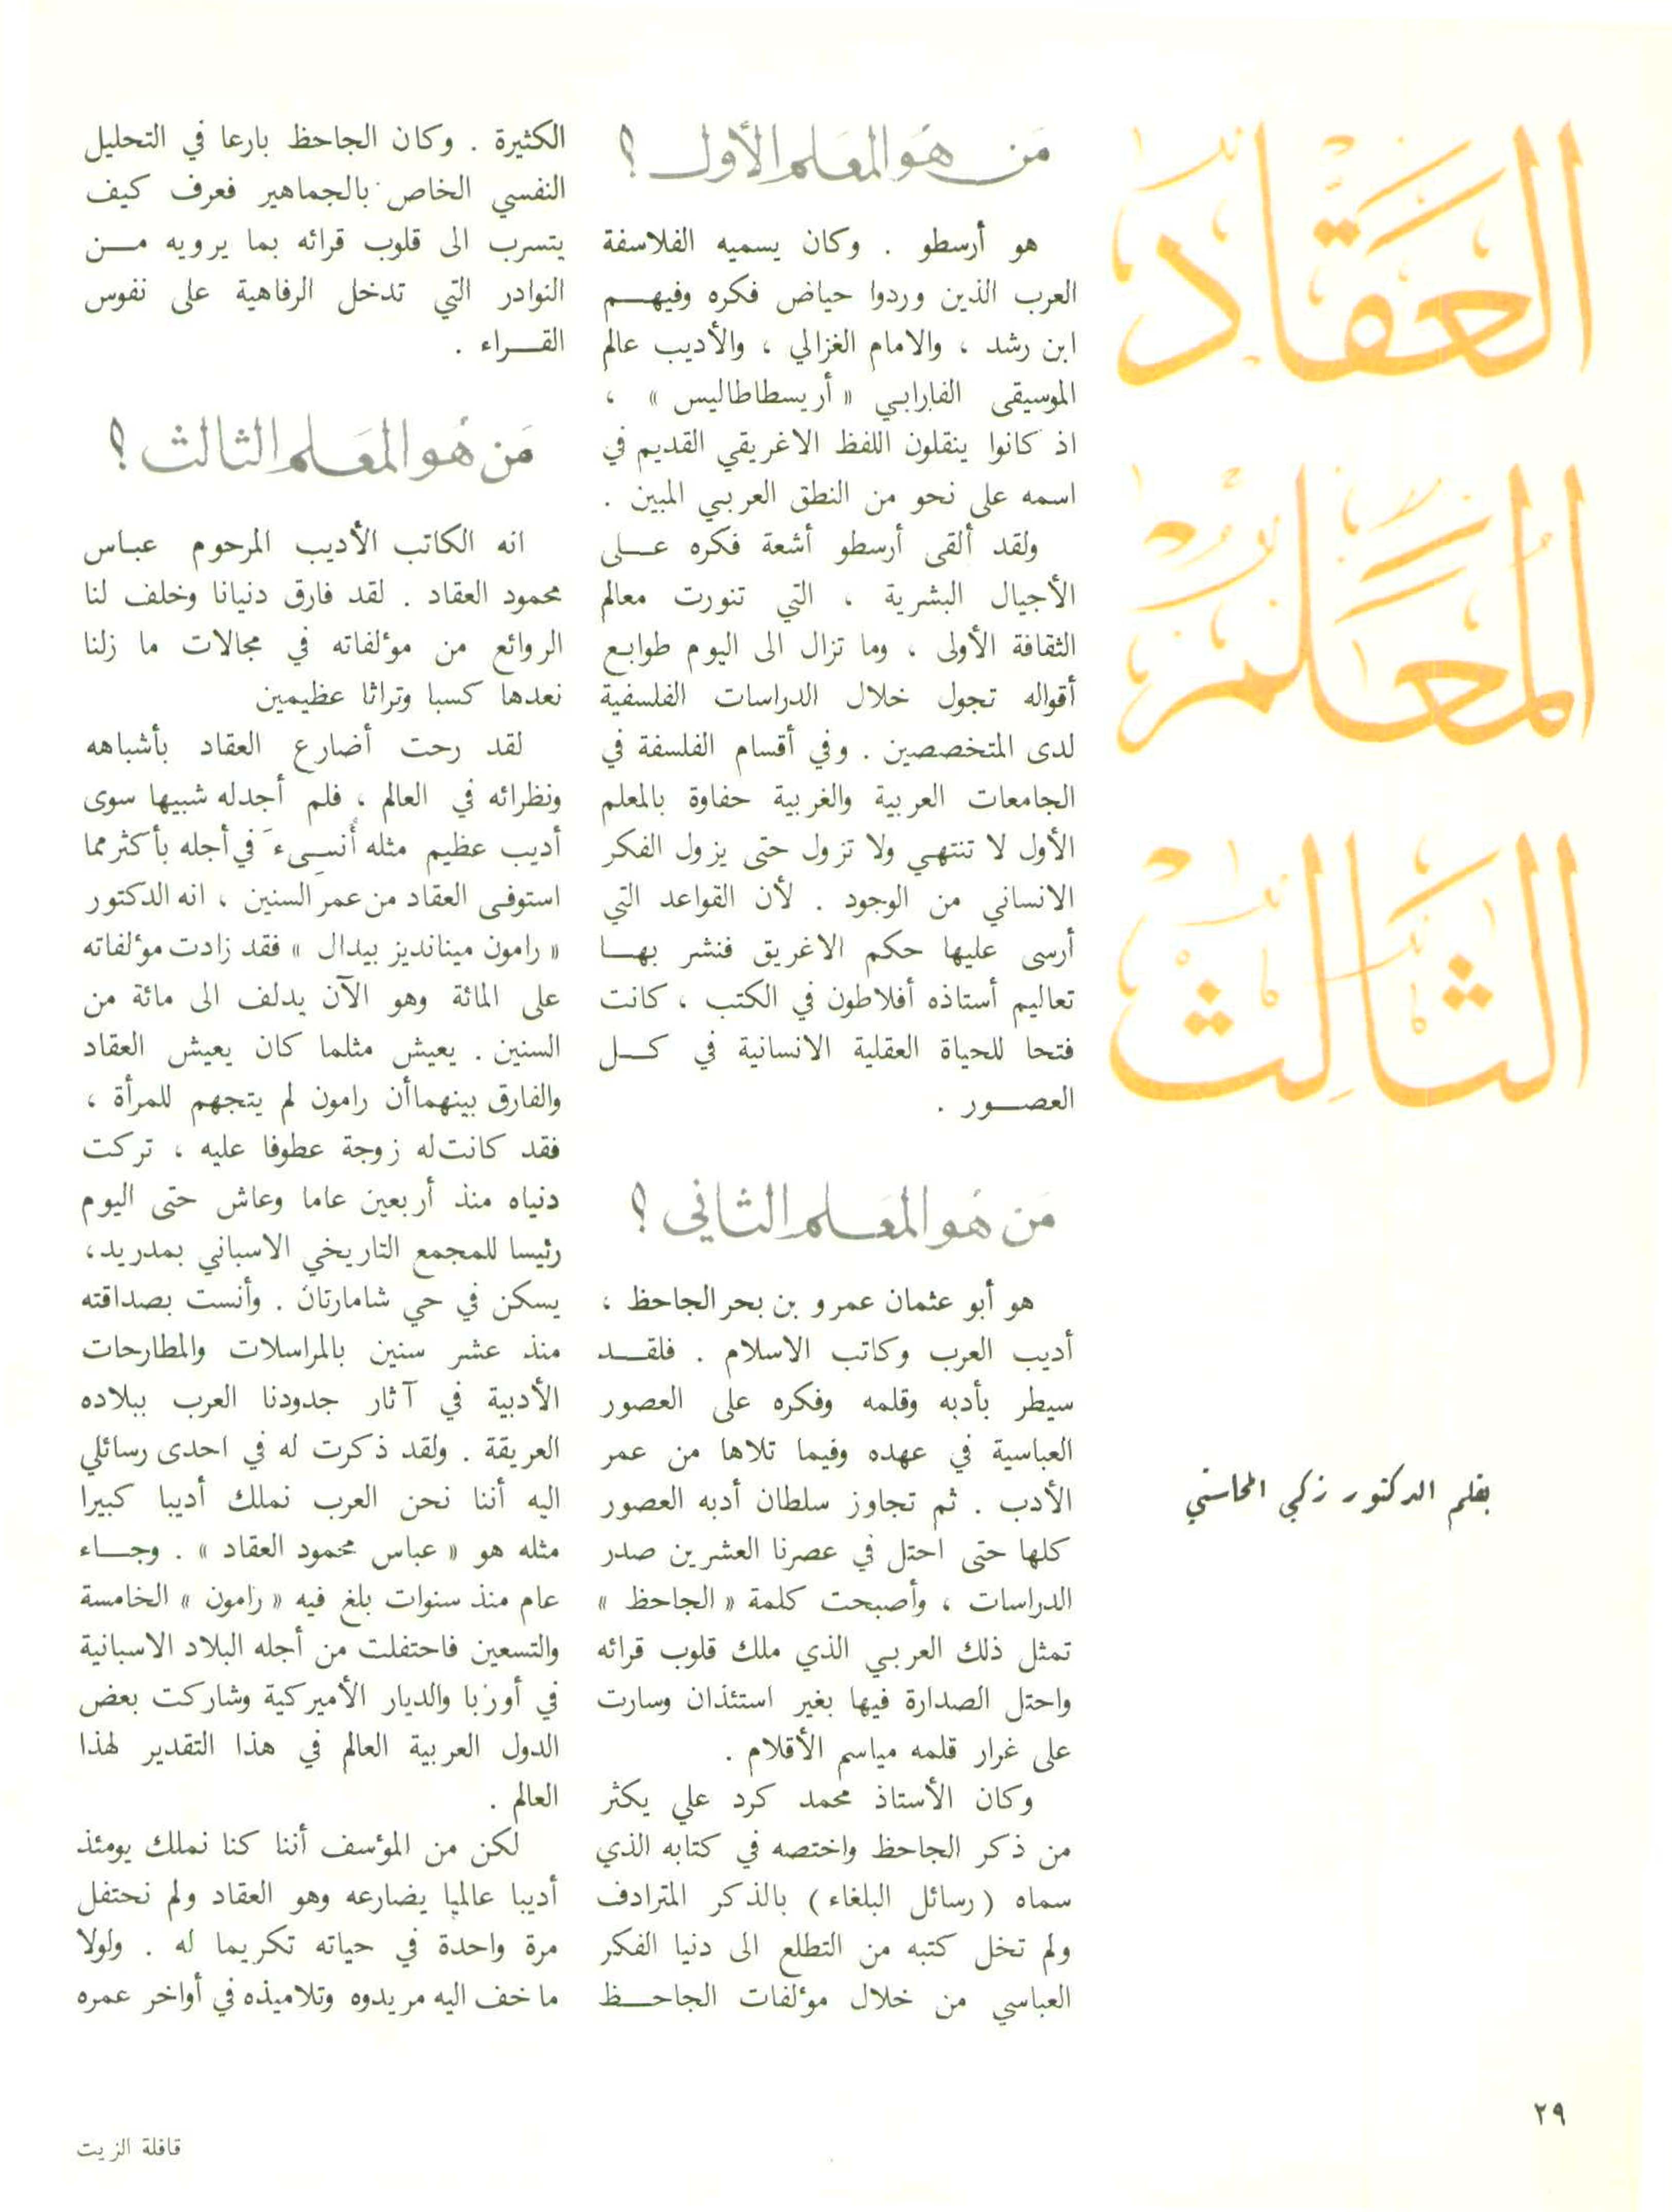 العقاد
المعلم
الثالث
بقلم الدكتور زكي المحاسني
من هو المعلم الأول ؟
هو أرسطو . وكان يسميه الفلاسفة
العرب الذين وردوا حياض فكره وفيهم
ابن رشد ، والامام الغزالي ، والأديب عالم
الموسيقى الفارابي « أريسطاطاليس » ،
اذ كانوا ينقلون اللفظ الاغريقي القديم في
اسمه على نحو من النطق العربي المبين .
ولقد ألقى أرسطو أشعة فكره على
الأجيال البشرية ، التي تنورت معالم
الثقافة الأولى ، وما تزال الى اليوم طوابع
أقواله تجول خلال الدراسات الفلسفية
لدى المتخصصين . وفي أقسام الفلسفة في
الجامعات العربية والغربية حفاوة بالمعلم
الأول لا تنتهي ولا تزول حتى يزول الفكر
الانساني من الوجود . لأن القواعد التي
أرسى عليها حكم الاغريق فنشر بها
تعاليم أستاذه أفلاطون في الكتب ، كانت
فتحا للحياة العقلية الانسانية في كل
العصور .
من هو المعلم الثاني ؟
هو أبو عثمان عمرو بن بحر الجاحظ ،
أديب العرب وكاتب الاسلام . فلقد
سيطر بأدبه وقلمه وفكره على العصور
العباسية في عهده وفيما تلاها من عمر
الأدب . ثم تجاوز سلطان أدبه العصور
كلها حتى احتل في عصرنا العشرين صدر
الدراسات ، وأصبحت كلمة « الجاحظ »
تمثل ذلك العربي الذي ملك قلوب قرائه
واحتل الصدارة فيها بغير استئذان وسارت
على غرار قلمه مياسم الأقلام .
وكان الأستاذ محمد كرد علي يكثر
من ذكر الجاحظ واختصه في كتابه الذي
سماه ( رسائل البلغاء ) بالذكر المترادف
ولم تخل كتبه من التطلع الى دنيا الفكر
العباسي من خلال مؤلفات الجاحظ
الكثيرة . وكان الجاحظ بارعا في التحليل
النفسي الخاص بالجماهير فعرف كيف
يتسرب الى قلوب قرائه بما يرويه من
النوادر التي تدخل الرفاهية على نفوس
القراء .
من هو المعلم الثالث ؟
انه الكاتب الأديب المرحوم عباس
محمود العقاد . لقد فارق دنيانا وخلف لنا
الروائع من مؤلفاته في مجالات ما زلنا
نعدها كسبا وتراثا عظيمين
لقد رحت أضارع العقاد بأشباهه
ونظرائه في العالم ، فلم أجدله شبيها سوى
أديب عظيم مثله أُنسِيءَ في أجله بأكثر مما
استوفى العقاد من عمر السنين ، انه الدكتور
« رامون مينانديز بيدال » فقد زادت مؤلفاته
على المائة وهو الآن يدلف الى مائة من
السنين . يعيش مثلما كان يعيش العقاد
والفارق بينهما أن رامون لم يتجهم للمرأة ،
فقد كانت له زوجة عطوفا عليه ، تركت
دنياه منذ أربعين عاما وعاش حتى اليوم
رئيسا للمجمع التاريخي الاسباني بمدريد،
يسكن في حي شامارتان . وأنست بصداقته
منذ عشر سنين بالمراسلات والمطارحات
الأدبية في آثار جدودنا العرب ببلاده
العريقة . ولقد ذكرت له في احدى رسائلي
اليه أننا نحن العرب نملك أديبا كبيرا
مثله هو « عباس محمود العقاد » . وجاء
عام منذ سنوات بلغ فيه « رامون » الخامسة
والتسعين فاحتفلت من أجله البلاد الاسبانية
في أوربا والديار الأميركية وشاركت بعض
الدول العربية العالم في هذا التقدير لهذا
العالم .
لكن من المؤسف أننا كنا نملك يومئذ
أديبا عالميا يضارعه وهو العقاد ولم نحتفل
مرة واحدة في حياته تكريما له . ولولا
ما خف اليه مريدوه وتلاميذه في أواخر عمره
٢٩
قافلة الزيت